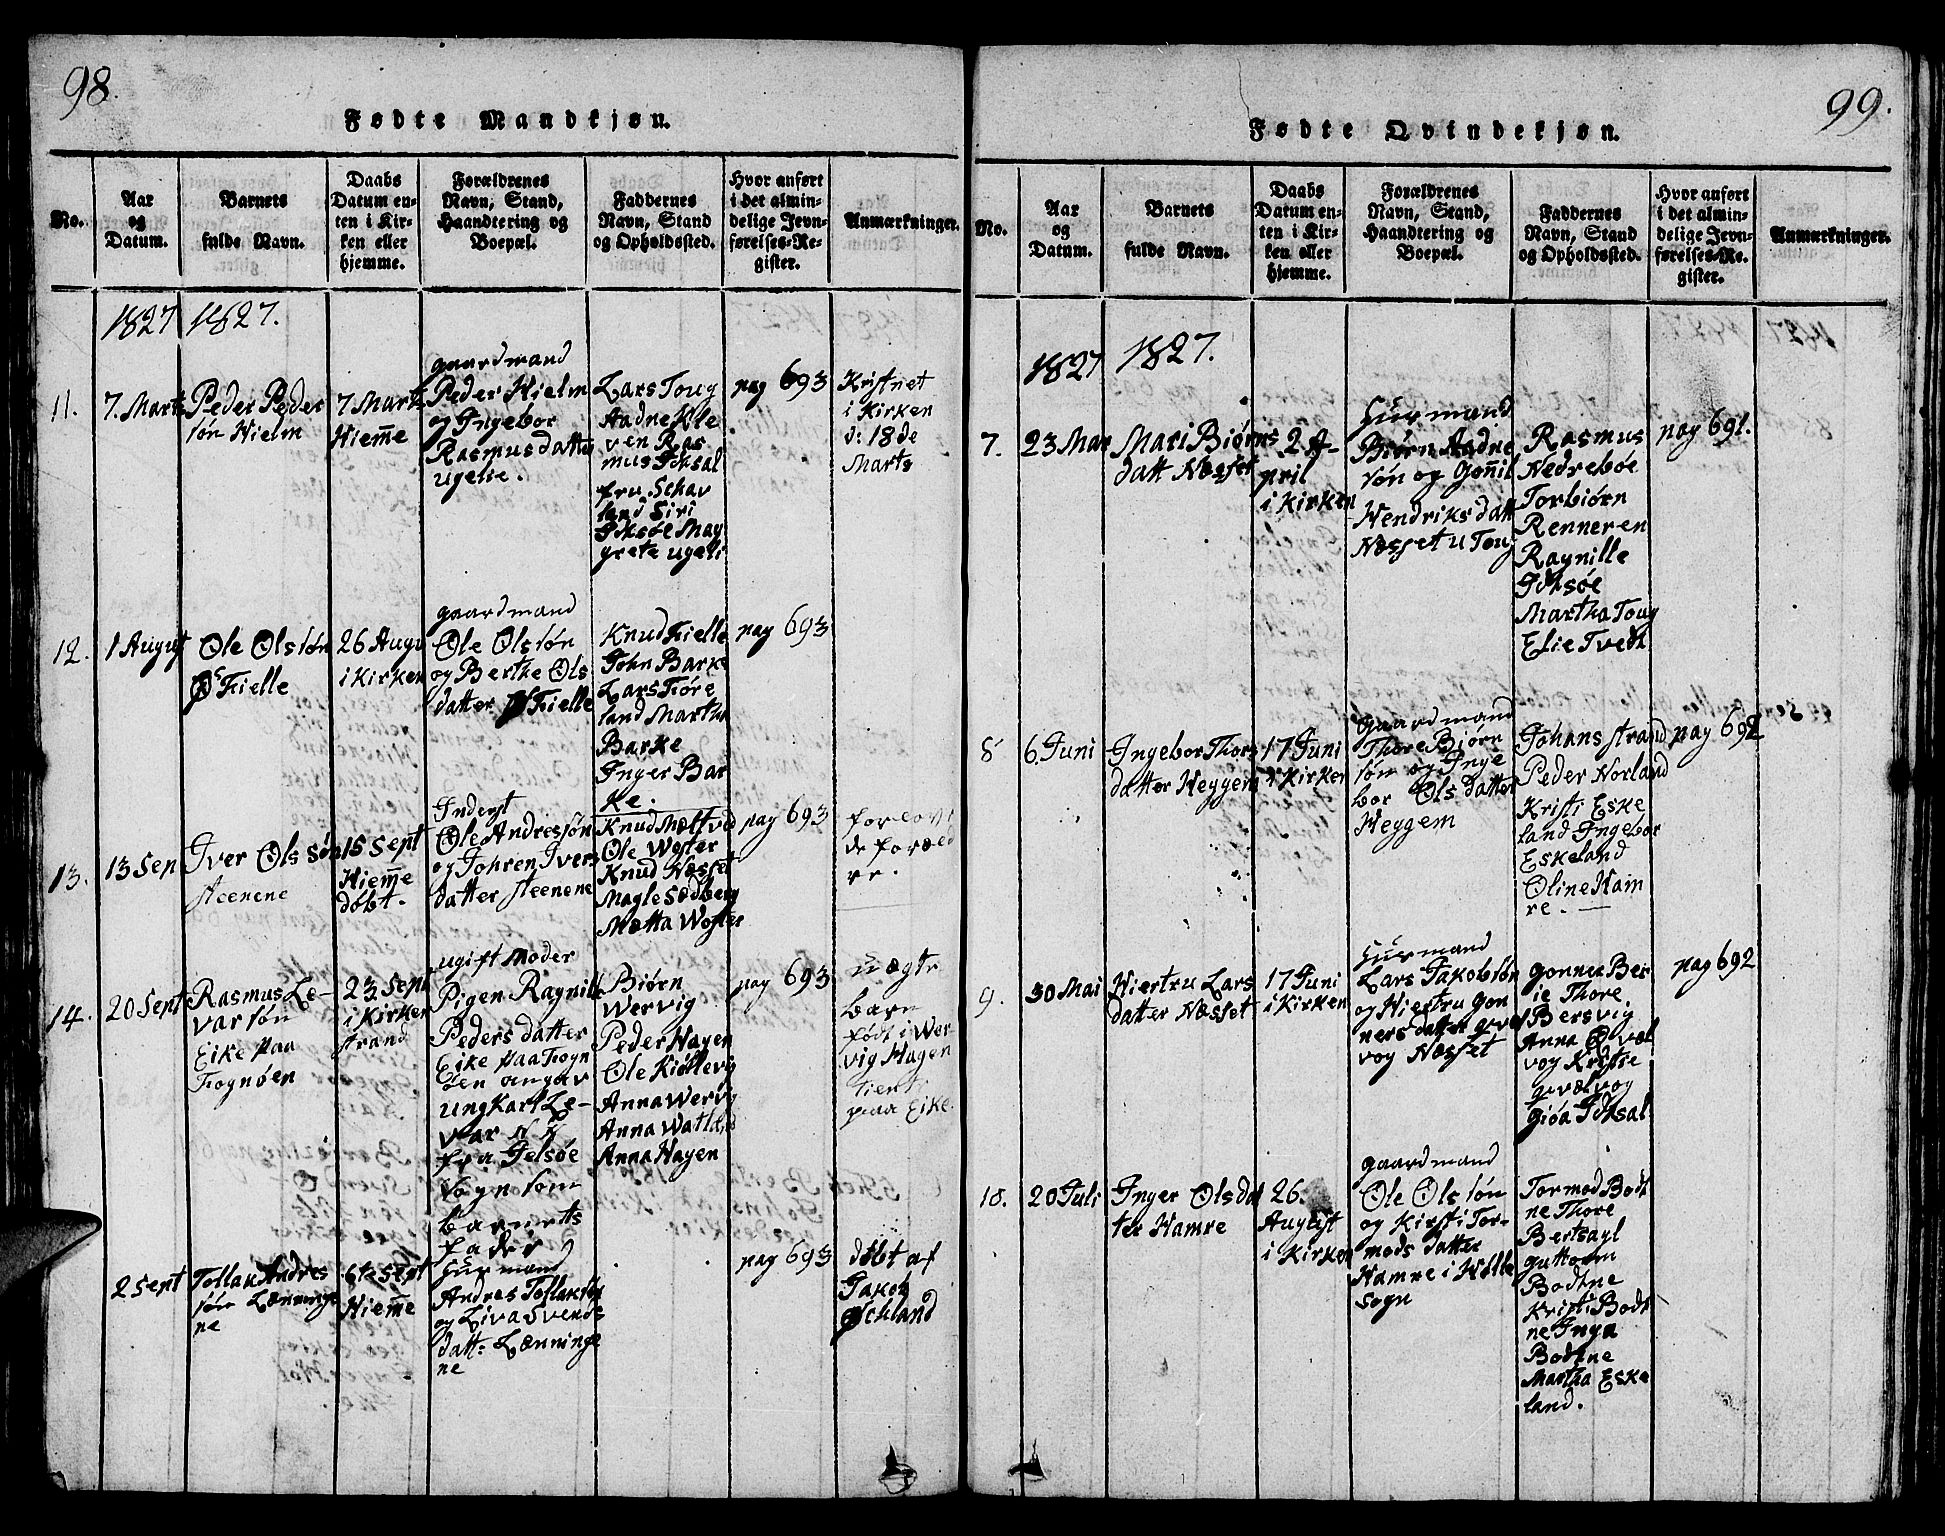 98.
Fødte Mandkjøn.
No.
Aar
og
Datum.
Barnets
fulde Navn.
Daabs
Datum en-
ten i Kir-
ken eller
hjemme.
Forældrenes
Navn, Stand,
Haandtering og
Boepæl.
Faddernes
Navn, Stand
og Opholdssted.
Hvor anført
i det almin-
delige Jevn-
førelses-Re-
gister.
Anmærkninger.
1827 1827.
11.
7. Marts
Peder Peder
søn Hielm
7 Marts
Hieme
gaardmand
Peder Hielm
og Ingebor
Rasmusdatter
ugelie.
Lars Toug
Aadne Kle
ven Ras
mus Idsal
fru Schav
land Siri
Idsøe Mar
grete ugeli
pag 693
Kristnet
i Kirken
d: 18 de
Marts
12.
1 August
Ole Olssøn
Fielle
26 Augu
i Kirken
gaardmand
Ole Olssøn
og Berthe Ols
datter Fielle
Knud Fielle
John Barke
Lars Fiøre
land Martha
Barke
Inger Bar
ke.
pag 693
13.
13 Sep
Iver Olssøn
steenene
15 Sept
Hieme
døbt.
Inderst
Ole Andressøn
og Johren Ivers
datter steenene
Knud Mæltved
Ole Woster
Knud Næsset
Magle Sedberg
Mætta Woster
pag 693
forlovt
de foræld
re.
14.
20 Sept
Rasmus Le-
varsøn
Eike paa
Fognøen
23 Sept
i Kirken
strand
ugift Moder
Pigen Ragnille
Peders datter
Eike paa Fogn
øen angav
ungkarl Le-
var N N
fra Jelsøe
sogn som
barnets
fader
Biørn
Wervig
Peder Hagen
Ole Kiøllevig
Anna Wervig
Anna Watland
Anna Hagen
pag 693
uægte
barn
født i Wer
vig Hagen
tient
paa Eike.
2 Sept
Tollak Andres
søn Lænninge
ne
6te Sept
Hieme
Huusmand
Andres Tollaksøn
og Liva Svends
datt: Lænninge
ne
pag 693
døbt af
Jakob
Øchland
99.
Fødte Qvindekjøn.
No.
Aar
og
Datum.
Barnets
fulde Navn.
Daabs
Datum en-
ten i Kir-
ken eller
hjemme.
Forældrenes
Navn, Stand,
Haandtering og
Boepæl.
Faddernes
Navn, Stand
og Opholdssted.
Hvor anført
i det almin-
delige Jevn-
førelses-Re-
gister.
Anmærkninger.
1827 1827.
7.
23 Mar
Mari Biørns
datt Næsset
2 A-
pril
i Kirken
Huusmand
Biørn Aadne
søn og Gonil
Hendriksdatt
Næsset u Toug
Rasmus
Nedrebøe
Torbiørn
Renneren
Ragnille
Idsøe
Martha Toug
Elie Tvedt
pag 691.
8
6 Juni
Ingebor Thors
datter Heggem
17 Juni
i Kirken
gaardmand
Thore Biørn
søn og Inge
bor Olsdatter
Heggem
Johans strand
Peder Norland
Kristi Eske
land Ingebor
Eskeland
Oline Ham
re.
pag 692
9.
30 Mai
Hiertru Lars
datter Næsset
17 Juni
i Kirken
Huusmand
Lars Jakobsøn
og Hiertru Gon
nersdatter qvel
vog Næsset
gonner Ber
ie Thore
Bersvig
Anna Qvæl
vog Kristie
qvælvog
gióa Idsal
pag 692
10.
20 Juli
Inger Olsdat
ter Hamre
26.
August
i Kirken
gaardmand
Ole Olssøn
og Kirsti Tor-
mods datter
Hamre i Hølle
sogn
Tormod Bodt
ne Thore
Bertsagl
guttorm
Bodtne
Kristi Bodt
ne Inga
Bodtne
Martha Eske
land.